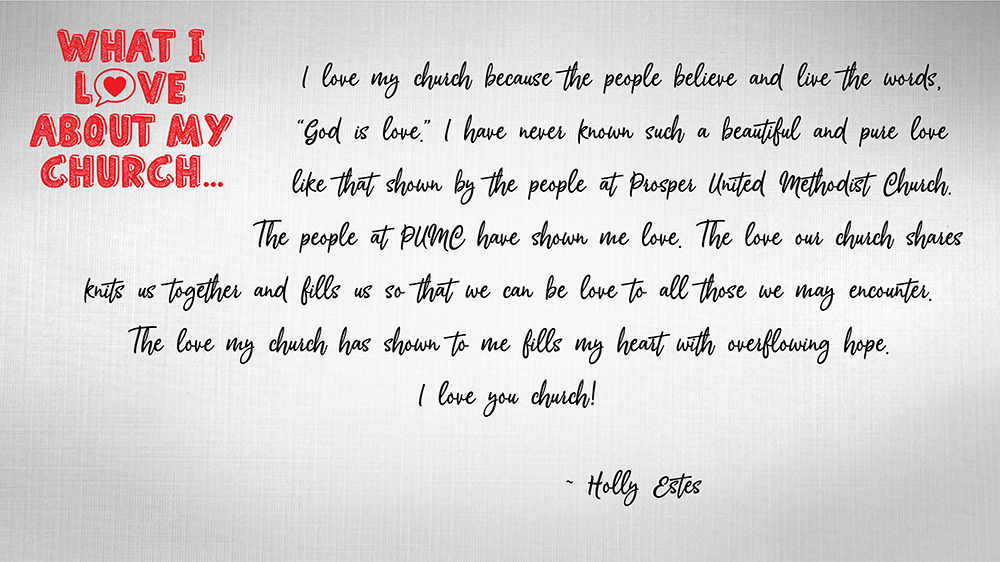 WHAT I
LOVE
ABOUT MY
CHURCH...
I love my church because the people believe and live the words,
“God is love.” I have never known such a beautiful and pure love
like that shown by the people at Prosper United Methodist Church.
The people at PUMC have shown me love. The love our church shares
knits us together and fills us so that we can be love to all those we may encounter.
The love my church has shown to me fills my heart with overflowing hope.
I love you church!
~ Holly Estes